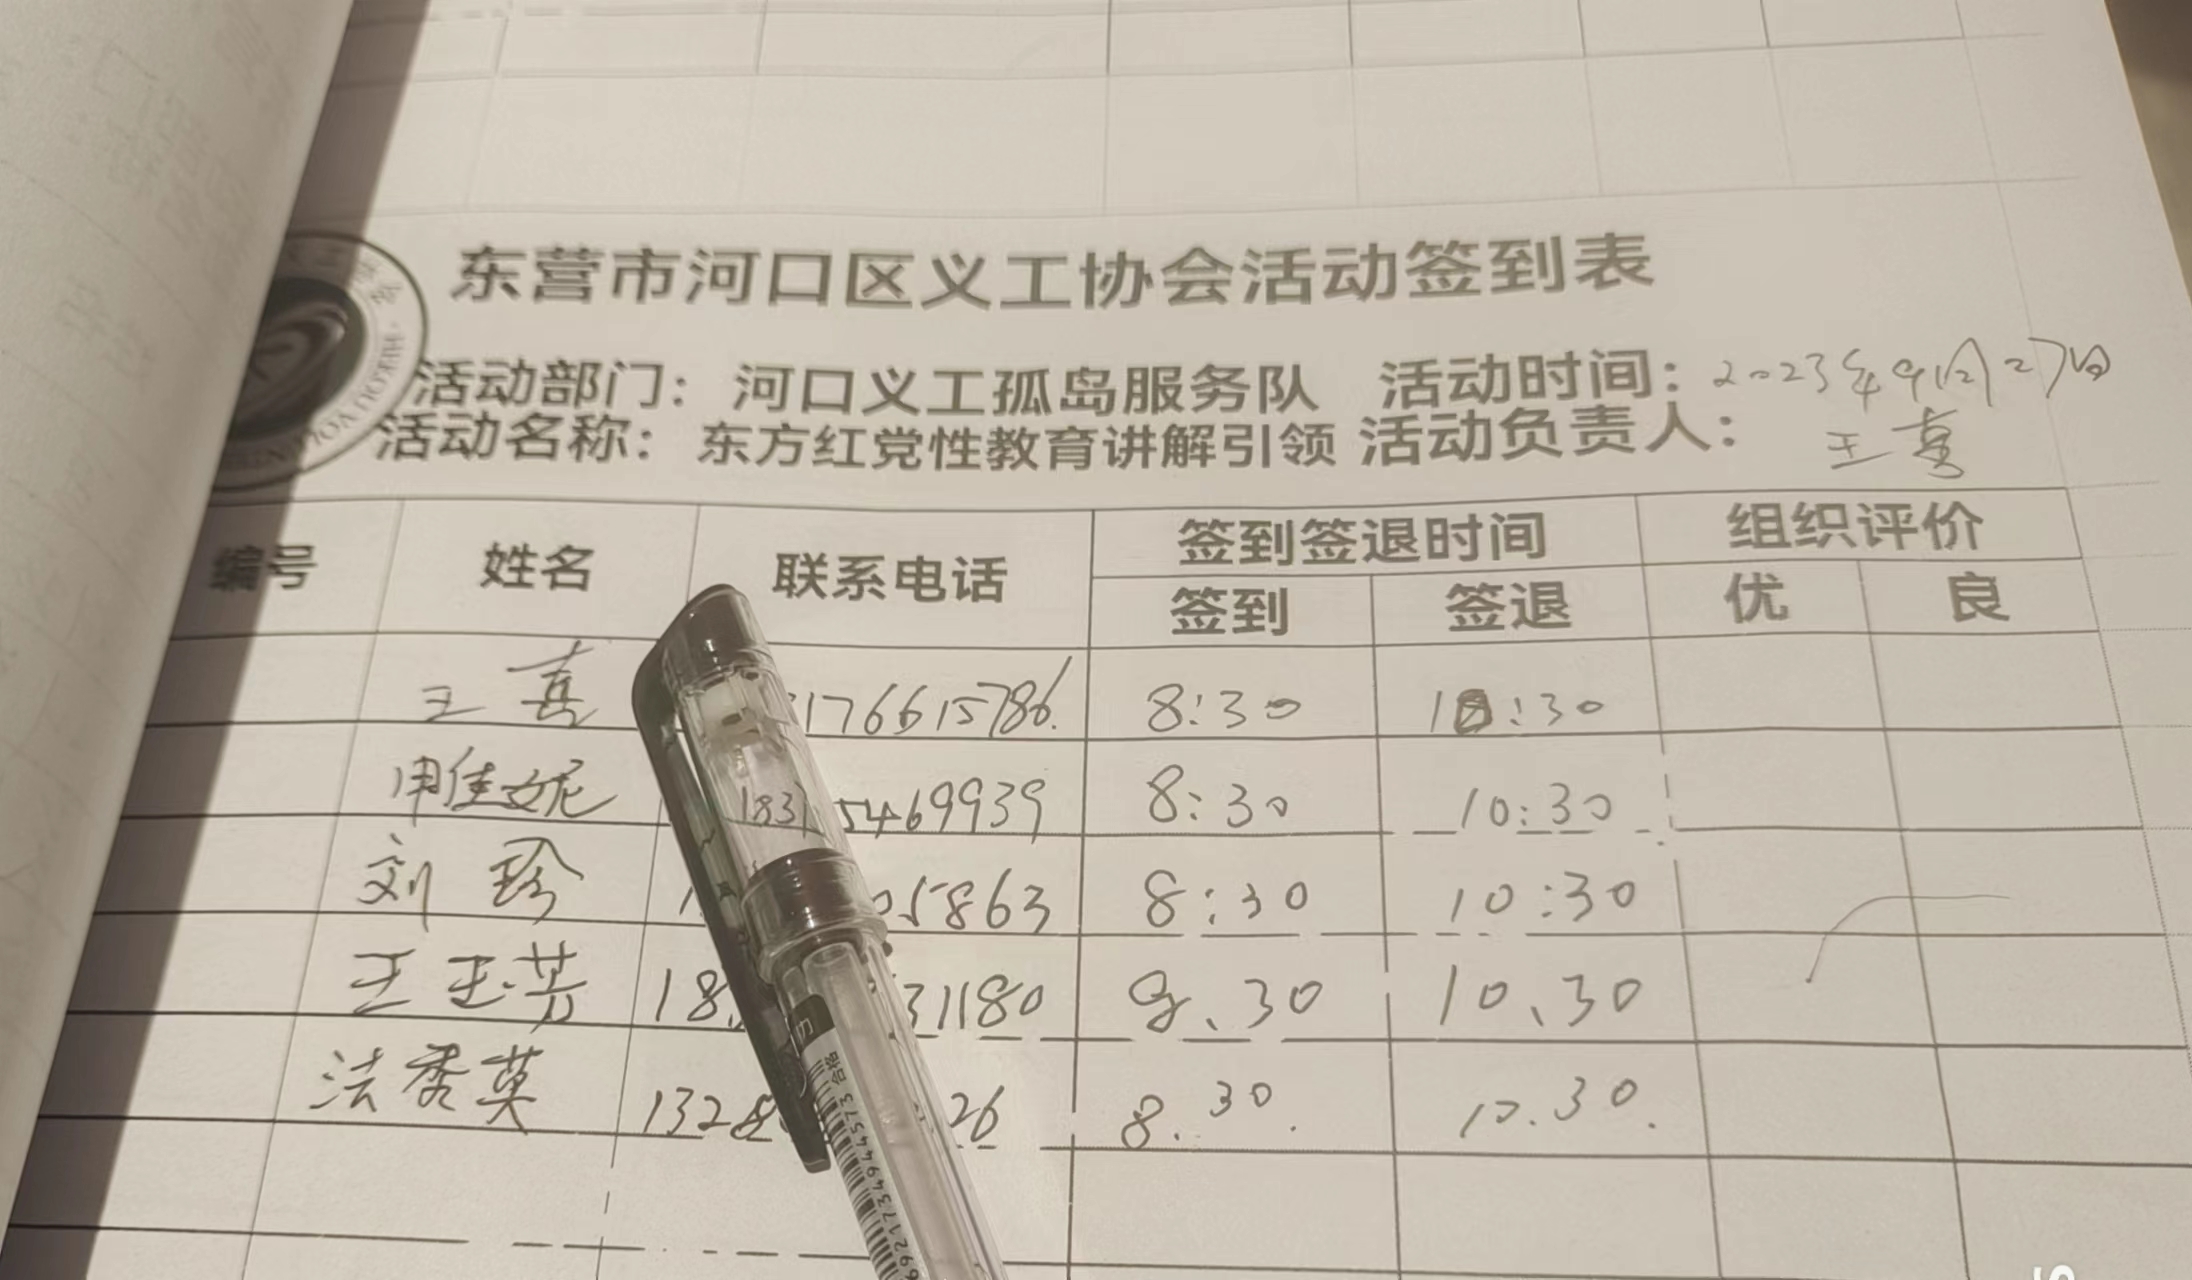 东营市河口区义工协会活动签到表
活动部门：河口义工孤岛服务队 活动时间：2023年9月27日
活动名称：东方红党性教育讲解引领 活动负责人：王喜
编号 姓名 联系电话 签到签退时间 组织评价
签到 签退 优 良
王喜 176615786. 8:30 10:30
申佳妮 1831 5469939 8:30 10:30
刘珍 05863 8:30 10:30
王玉芳 18 31180 8、30 10、30
法秀英 1328 26 8.30. 10.30.
合格